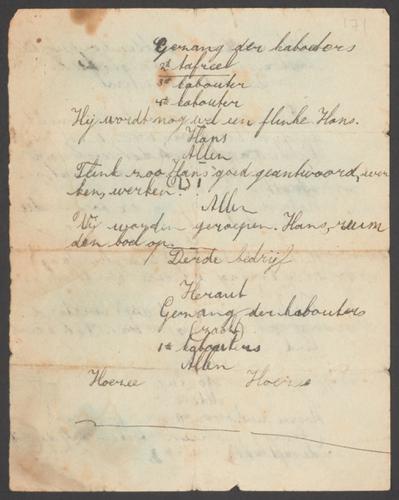 171
Gezang der kabouters
2de tafreel
3de kabouter
4de kabouter
Hij wordt nog wel een flinke Hans.
Hans
Allen
Flink zoo Hans goed geantwoord, wer
ken, werken!
Allen
Wij worden geroepen. Hans, ruim
den boel op.
Derde bedrijf
Heraut
Gezang der kabouters
1ste kabouters
Allen
Hoezee Hoezee